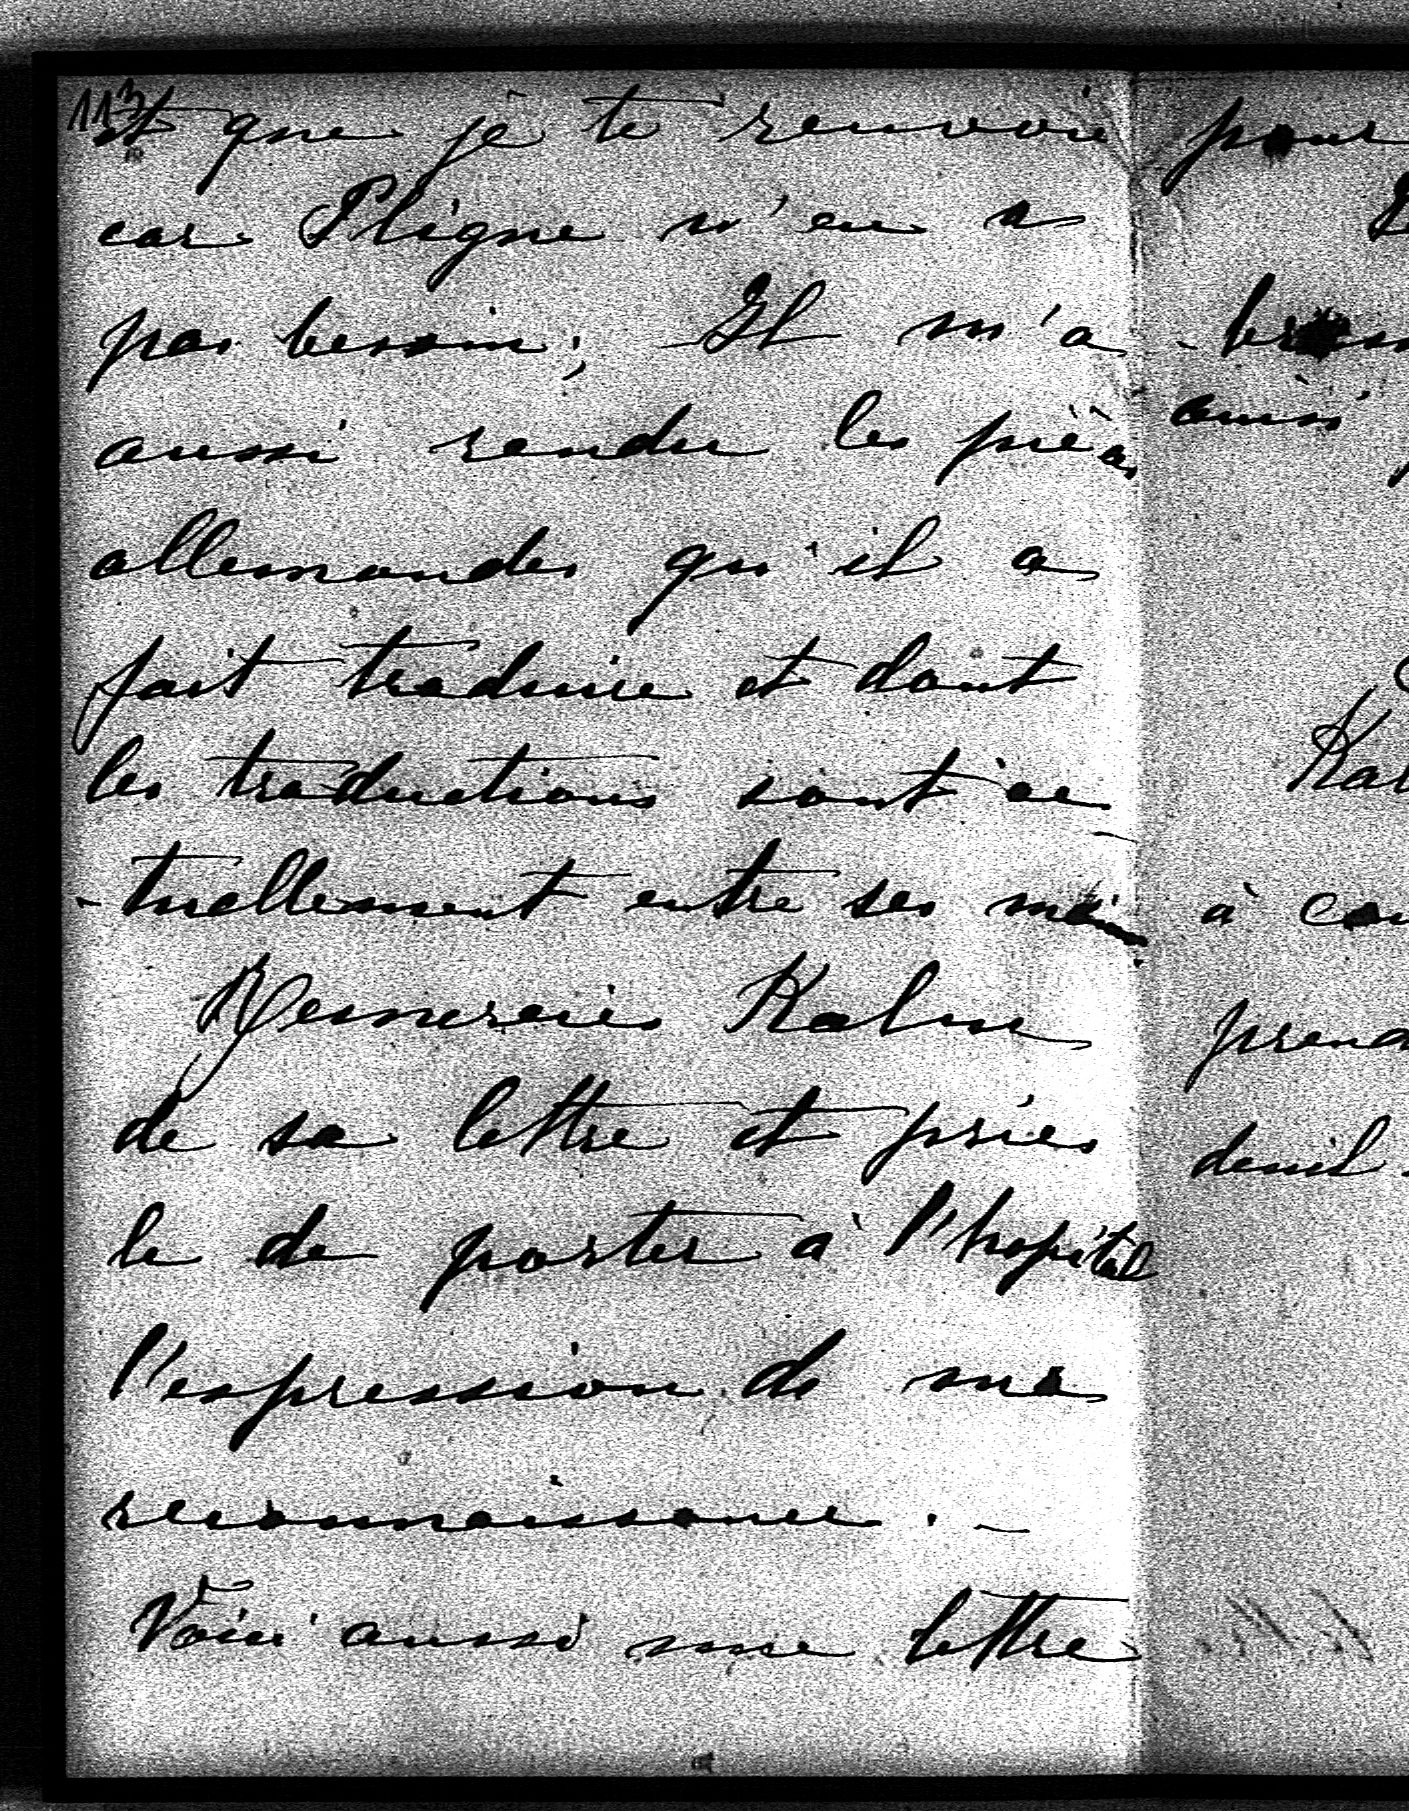 113
et que je te renvoie
car Pligne n'en a
pas besoin; Il m'a
aussi rendu les pièces
allemandes qu'il a
fait traduire et dont
les traductions sont ac
-tuellement entre ses mains.
Remercies Kahn
de sa lettre et pries
le de porter à l'hopital
l'expression de ma
reconnaissance. -
Voici aussi une lettre
pour
ainsi
à
deuil